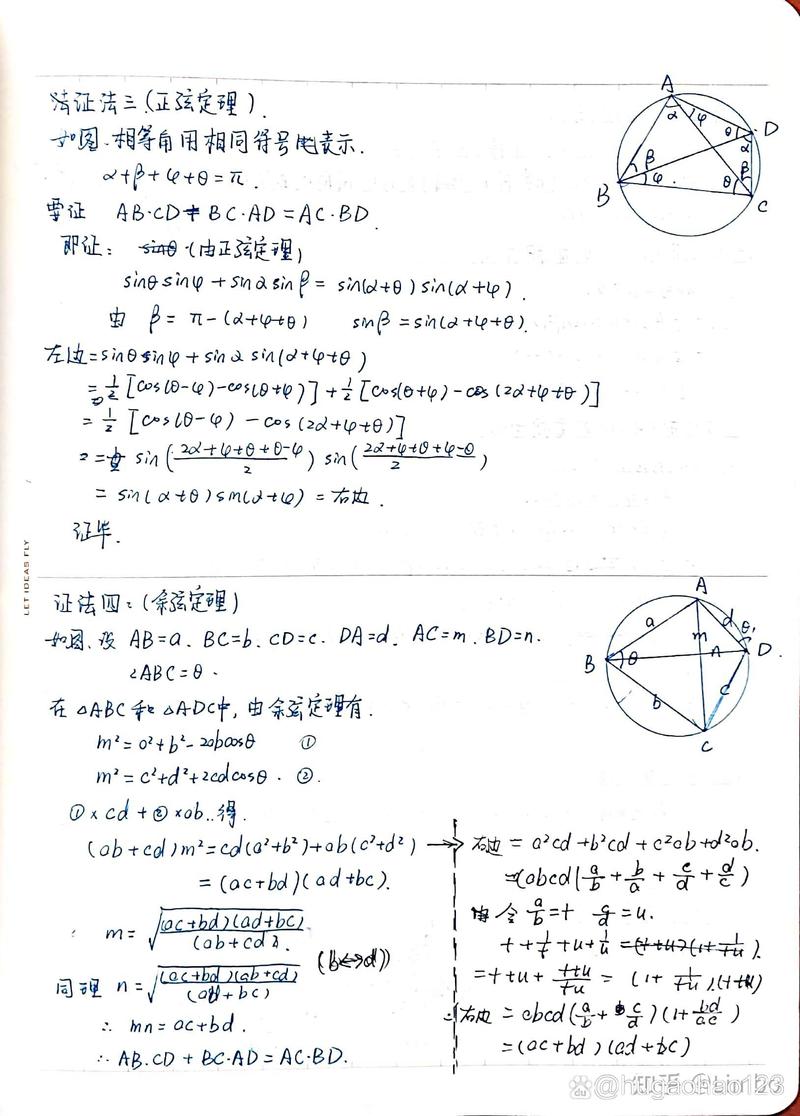 证法三(正弦定理).
如图.相等角用相同符号表示.
α+β+φ+θ=π.
要证 AB·CD+BC·AD=AC·BD
即证: sinθ (由正弦定理)
sinθsinφ+sinαsinβ= sin(α+θ)sin(α+φ).
由 β= π-(α+φ+θ) sinβ=sin(α+φ+θ).
左边=sinθsinφ+sinα sin(α+φ+θ)
=1/2[cos(θ-φ)-cos(θ+φ)]+1/2[cos(θ+φ)-cos(2α+φ+θ)]
=1/2[cos(θ-φ)-cos(2α+φ+θ)]
= sin((2α+φ+θ+θ-φ)/2) sin((2α+φ+θ+φ-θ)/2)
= sin(α+θ)sin(α+φ)=右边.
证毕.
A
α
φ
θ
D
α
β
B
β
φ
θ
C
LET IDEAS FLY
证法四:(余弦定理)
如图.设 AB=a. BC=b. CD=c. DA=d. AC=m. BD=n.
∠ABC=θ.
在△ABC和△ADC中,由余弦定理有.
m²=a²+b²-2abcosθ ①
m²=c²+d²+2cdcosθ. ②.
①×cd+②×ab..得.
(ab+cd)m²=cd(a²+b²)+ab(c²+d²)
=(ac+bd)(ad+bc).
∴ m=√((ac+bd)(ad+bc)/(ab+cd)).
同理 n=√((ac+bd)(ab+cd)/(ad+bc)) (b↔d)
∴ mn=ac+bd.
∴ AB.CD+BC·AD=AC·BD.
A
a
d
m
n
θ'
B
θ
D.
b
c
C
→ 右边=a²cd+b²cd+c²ab+d²ab.
=abcd(a/b+b/a+c/d+d/c)
令 a/b=t c/d=u.
t+1/t+u+1/u =(t+u)(1+1/tu).
=t+u+(t+u)/tu=(1+1/tu)(t+u)
∴右边=abcd(a/b+c/d)(1+bd/ac)
=(ac+bd)(ad+bc)
知乎 @Limbo
@hugaohao123